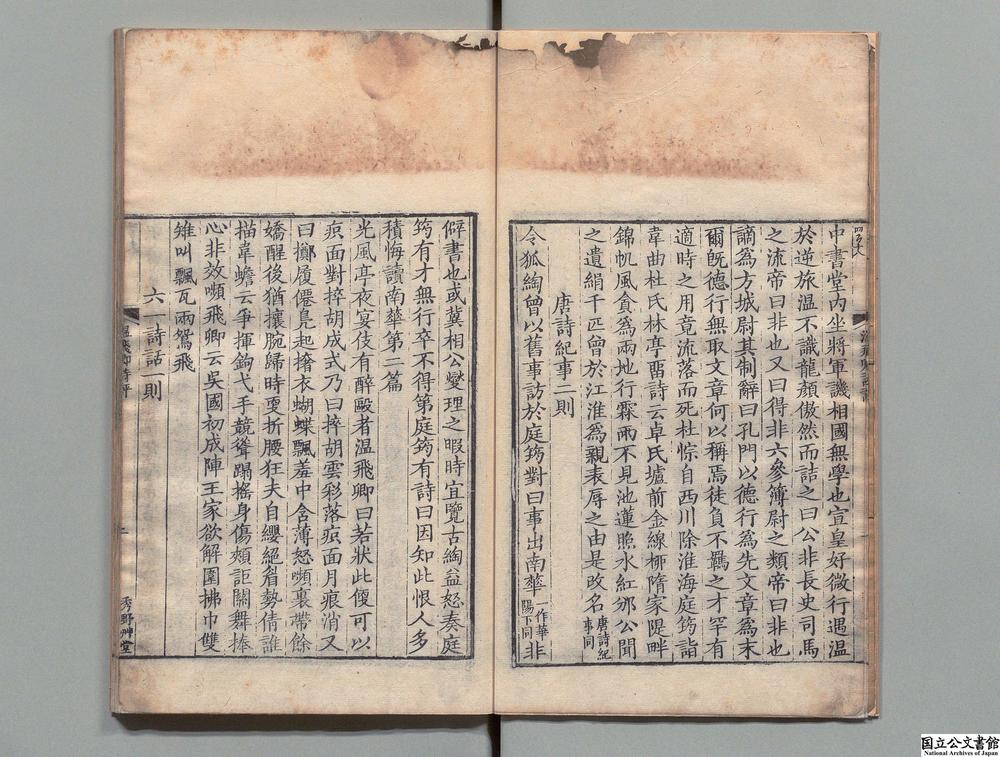 中書堂內坐將軍譏相國無學也宣皇好微行遇温
於逆旅温不識龍顏傲然而詰之曰公非長史司馬
之流帝曰非也又曰得非六參簿尉之類帝曰非也
謫爲方城尉其制辭曰孔門以德行爲先文章爲末
爾旣德行無取文章何以稱焉徒負不羈之才罕有
適時之用竟流落而死杜悰自西川除淮海庭筠詣
韋曲杜氏林亭畱詩云卓氏壚前金線栁隋家隄畔
錦帆風貪爲兩地行霖雨不見池蓮照水紅邠公聞
之遺絹千匹曾於江淮爲親表辱之由是改名唐詩紀事同
唐詩紀事二則
令狐綯曾以舊事訪於庭筠對曰事出南華一作華陽下同非
僻書也或冀相公燮理之暇時宜覽古綯益怒奏庭
筠有才無行卒不得第庭筠有詩曰因知此恨人多
積悔讀南華第二篇
光風亭夜宴伎有醉毆者温飛卿曰若狀此便可以
疻面對捽胡成式乃曰捽胡雲彩落疻面月痕消又
曰擲履僊鳧起撦衣蝴蝶飄羞中含薄怒嚬裏帶餘
嬌醒後猶攘腕歸時更折腰狂夫自纓絕眉勢倩誰
描韋蟾云爭揮鉤弋手競聳蹋搖身傷頰詎關舞捧
心非效嚬飛卿云吳國初成陣王家欲解圍拂巾雙
雉叫飄瓦兩鴛飛
六一詩話一則
溫飛卿詩評
秀野艸堂
国立公文書館
National Archives of Japan